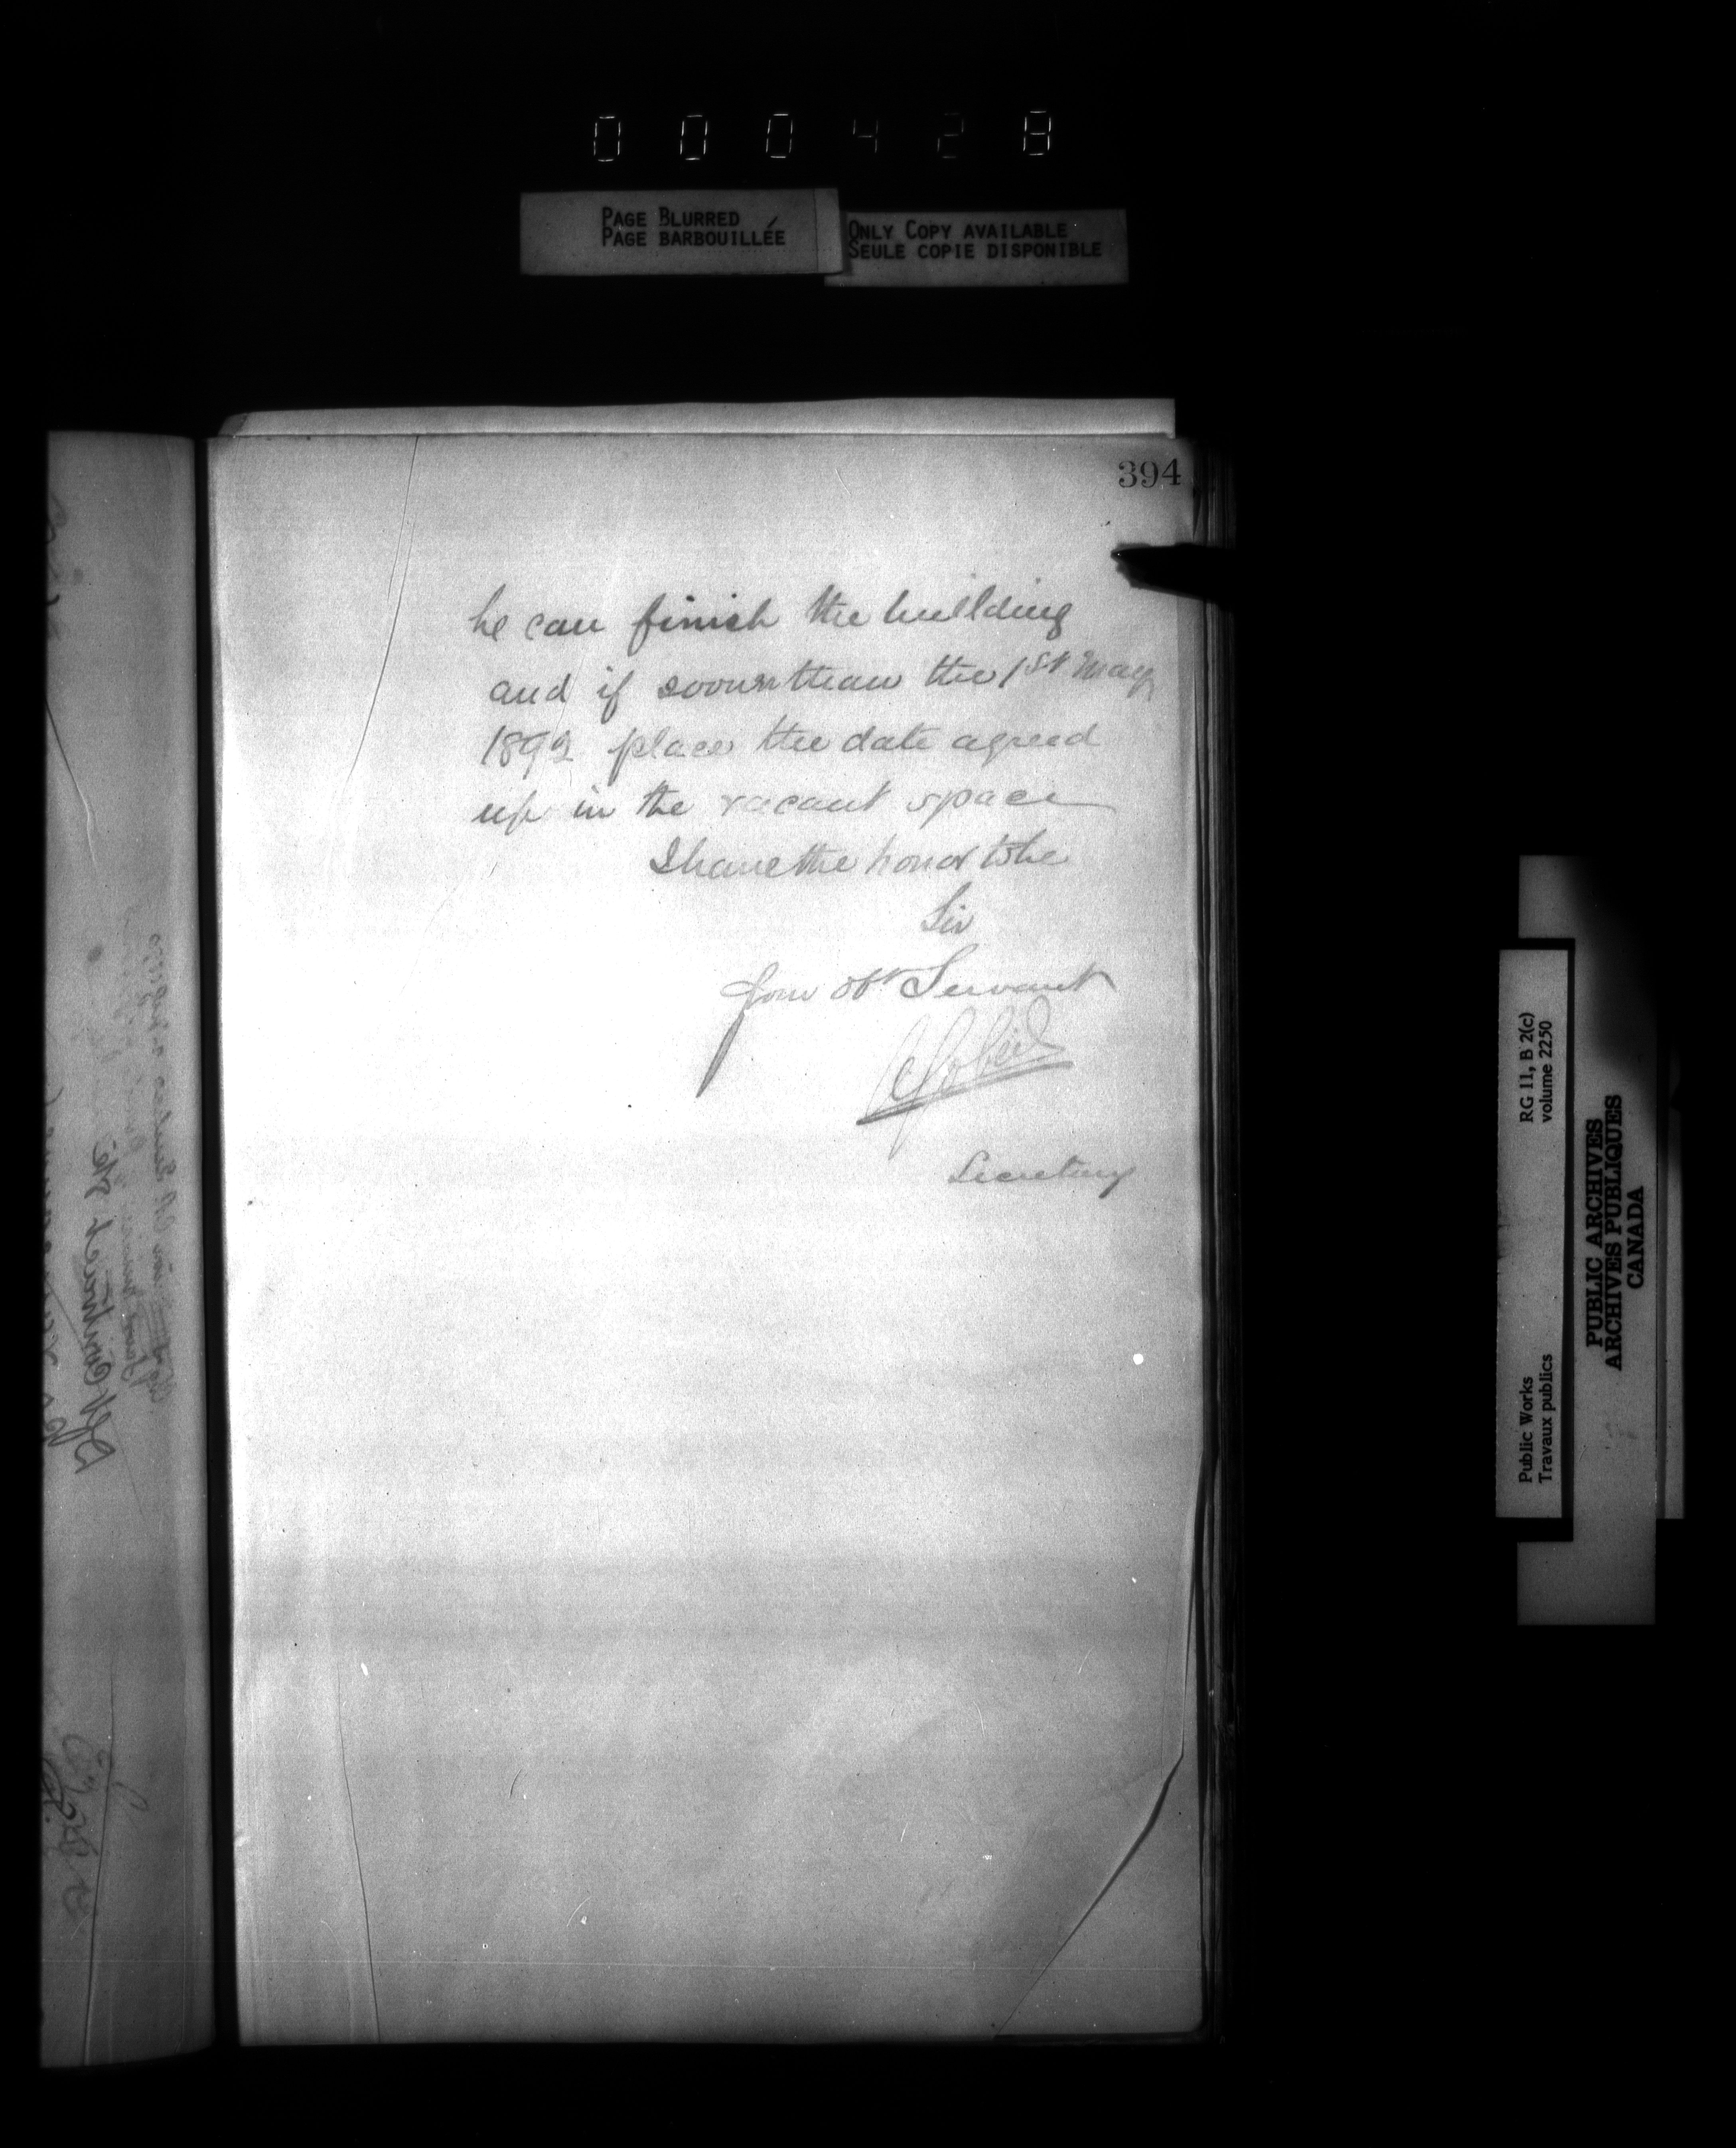 000428
PAGE BLURRED
PAGE BARBOUILLÉE
ONLY COPY AVAILABLE
SEULE COPIE DISPONIBLE
394
he can finish the building
and if sooner than the 1st May
1892 place the date agreed
up in the vacant space
I have the honor to be
Sir
Your obt Servant
Secretary
RG 11, B 2(c)
volume 2250
Public Works
Travaux publics
PUBLIC ARCHIVES
ARCHIVES PUBLIQUES
CANADA